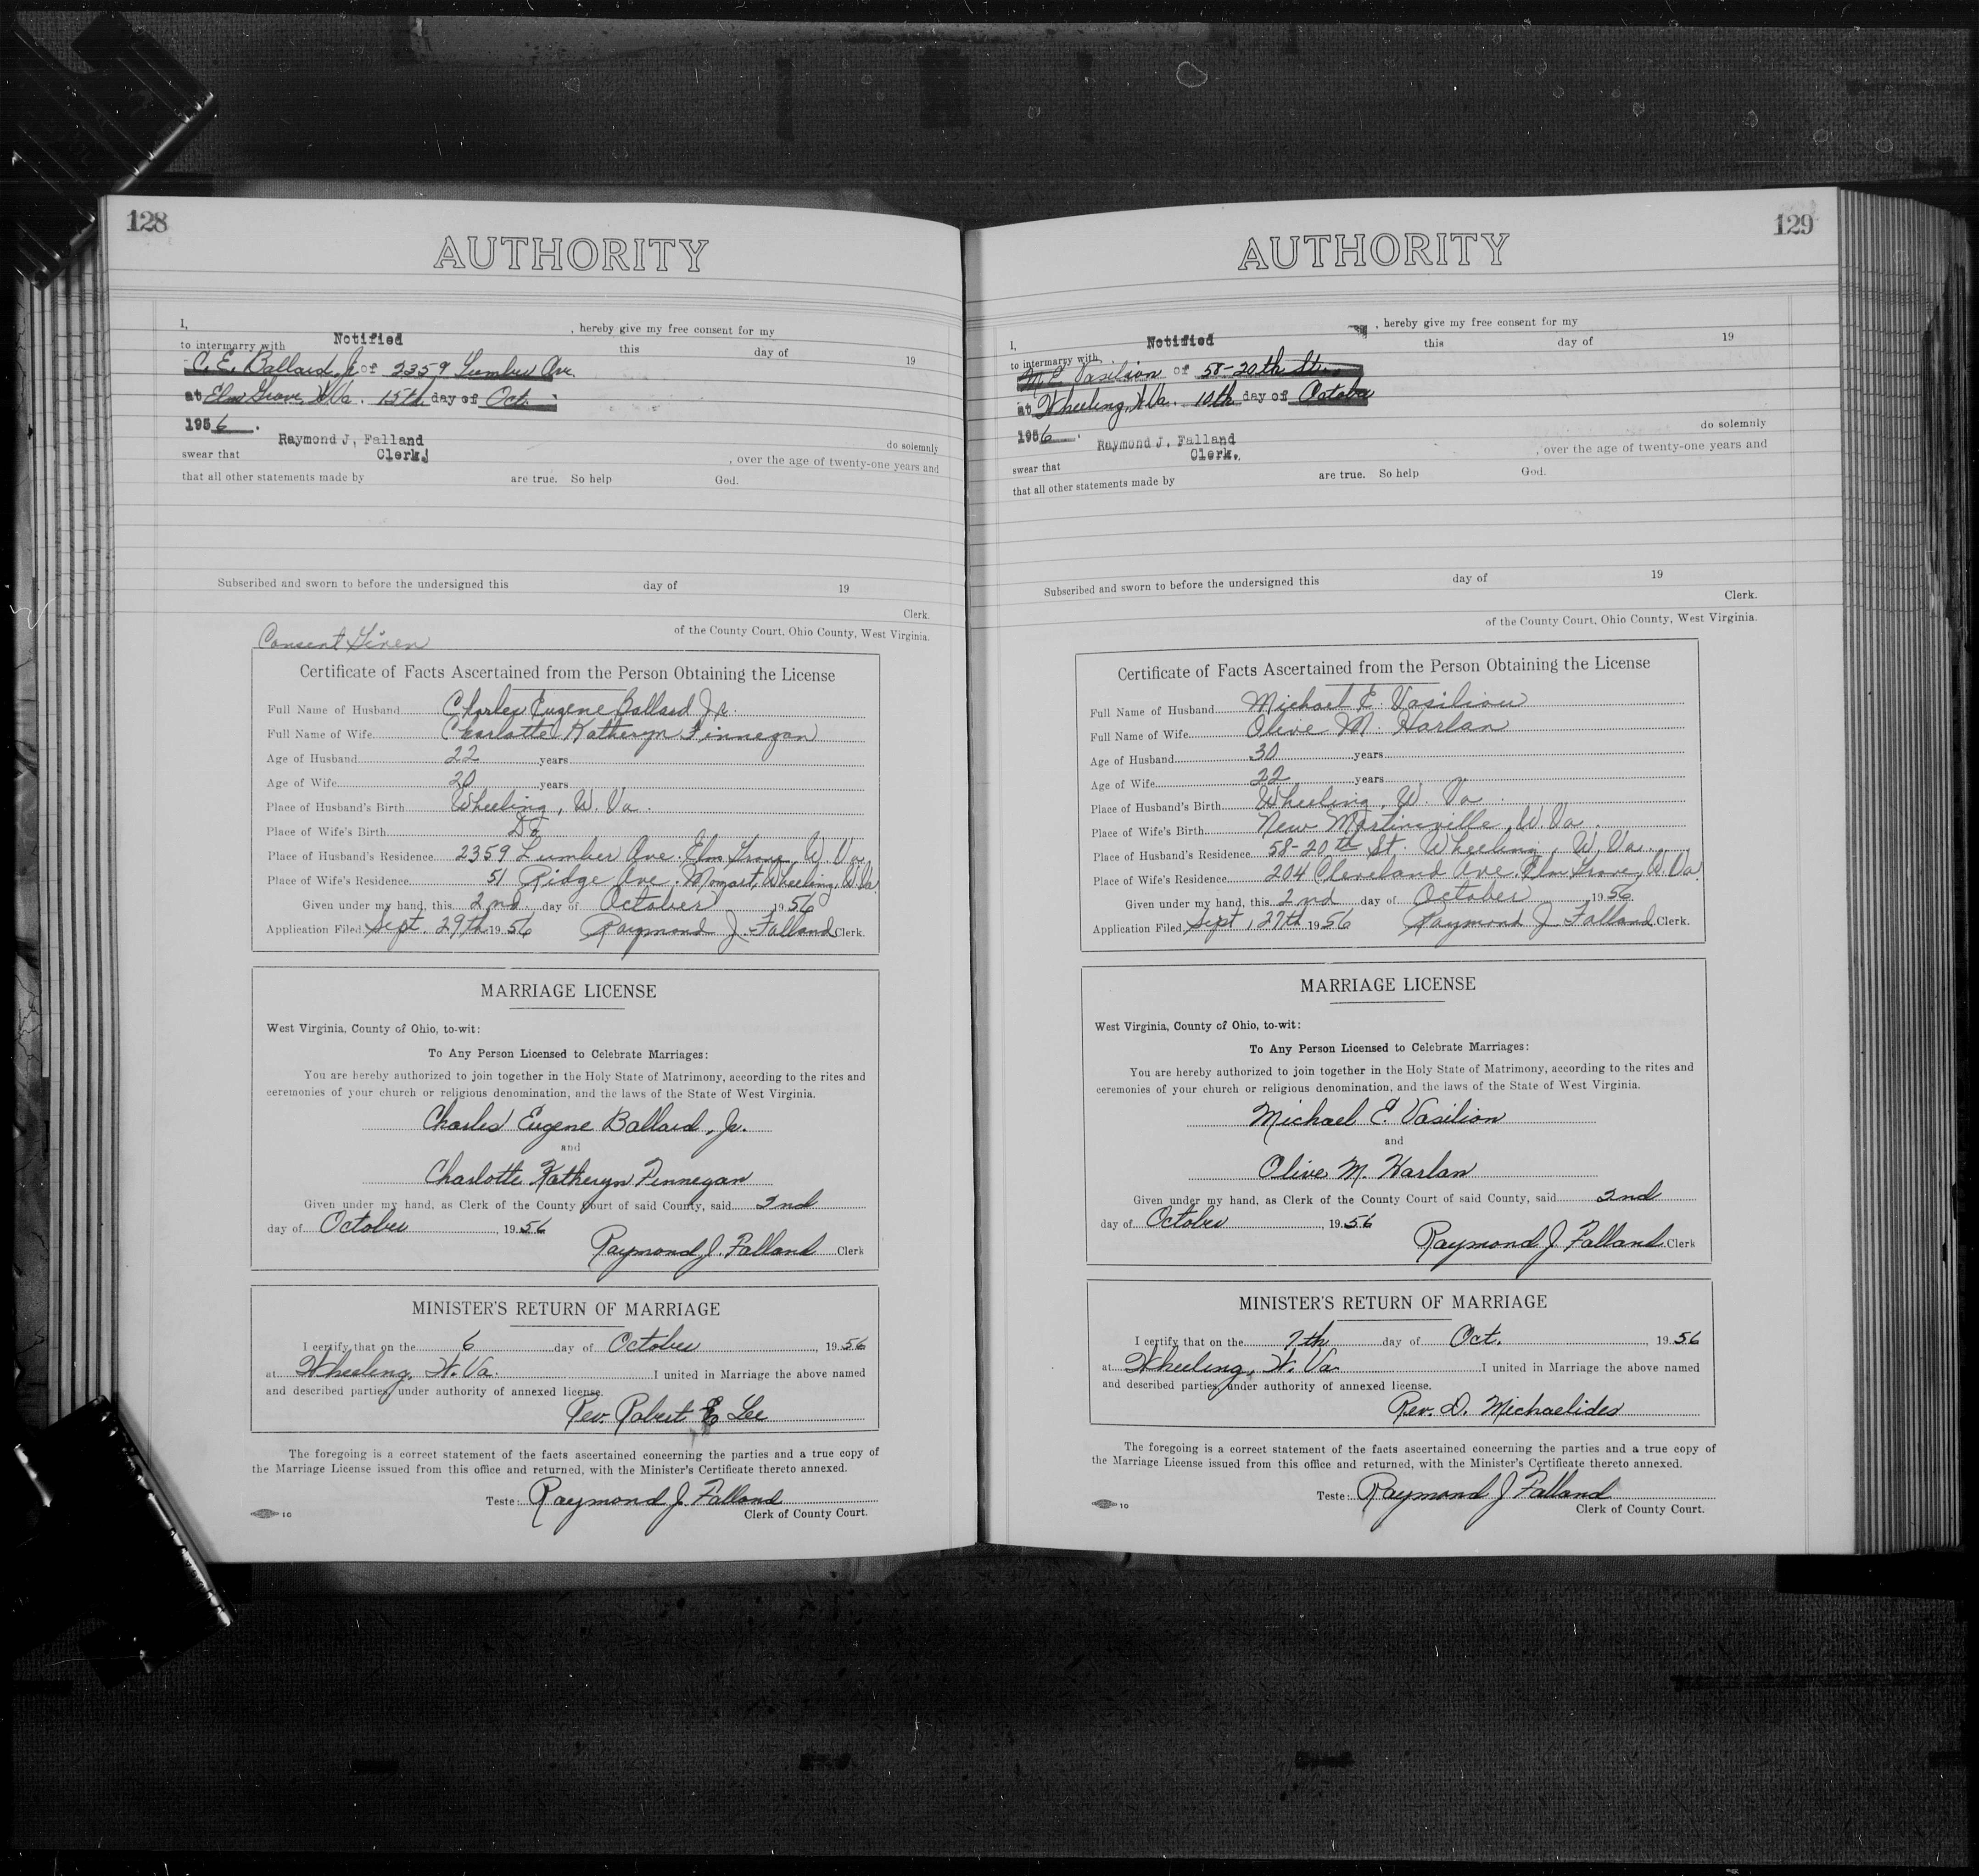 128
AUTHORITY
I, , hereby give my free consent for my
to intermarry with Notified this day of 19
C. E. Ballard, Jr of 2359 Lumber Ave.
at Elm Grove, W.Va. 15th day of Oct.
1956.
Raymond J. Falland do solemnly
swear that Clerk. , over the age of twenty-one years and
that all other statements made by are true. So help God.
Subscribed and sworn to before the undersigned this day of 19
Clerk.
of the County Court, Ohio County, West Virginia.
Consent Given
Certificate of Facts Ascertained from the Person Obtaining the License
Full Name of Husband Charles Eugene Ballard Jr.
Full Name of Wife Charlotte Katheryn Finnegan
Age of Husband 22 years
Age of Wife 20 years
Place of Husband's Birth Wheeling, W. Va.
Place of Wife's Birth Do
Place of Husband's Residence 2359 Lumber Ave. Elm Grove, W. Va.
Place of Wife's Residence 51 Ridge Ave. Mozart, Wheeling, W.Va.
Given under my hand, this 2nd day of October 1956
Application Filed Sept. 29th 1956 Raymond J. Falland Clerk.
MARRIAGE LICENSE
West Virginia, County of Ohio, to-wit:
To Any Person Licensed to Celebrate Marriages:
You are hereby authorized to join together in the Holy State of Matrimony, according to the rites and
ceremonies of your church or religious denomination, and the laws of the State of West Virginia.
Charles Eugene Ballard, Jr.
and
Charlotte Katheryn Finnegan
Given under my hand, as Clerk of the County Court of said County, said 2nd
day of October, 1956
Raymond J. Falland Clerk
MINISTER'S RETURN OF MARRIAGE
I certify that on the 6 day of October, 1956
at Wheeling, W. Va. I united in Marriage the above named
and described parties, under authority of annexed license.
Rev. Robert E. Lee
The foregoing is a correct statement of the facts ascertained concerning the parties and a true copy of
the Marriage License issued from this office and returned, with the Minister's Certificate thereto annexed.
Teste: Raymond J. Falland
10 Clerk of County Court.
129
AUTHORITY
I, , hereby give my free consent for my
to intermarry with Notified this day of 19
M. E. Vasilion of 58-20th St.
at Wheeling, W.Va. 10th day of October
1956.
Raymond J. Falland do solemnly
swear that Clerk. , over the age of twenty-one years and
that all other statements made by are true. So help God.
Subscribed and sworn to before the undersigned this day of 19
Clerk.
of the County Court, Ohio County, West Virginia.
Certificate of Facts Ascertained from the Person Obtaining the License
Full Name of Husband Michael E. Vasiliou
Full Name of Wife Olive M. Harlan
Age of Husband 30 years
Age of Wife 22 years
Place of Husband's Birth Wheeling, W. Va.
Place of Wife's Birth New Martinsville, W. Va.
Place of Husband's Residence 58-20th St. Wheeling, W. Va.
Place of Wife's Residence 204 Cleveland Ave. Elm Grove, W. Va.
Given under my hand, this 2nd day of October 1956
Application Filed Sept, 27th 1956 Raymond J. Falland Clerk.
MARRIAGE LICENSE
West Virginia, County of Ohio, to-wit:
To Any Person Licensed to Celebrate Marriages:
You are hereby authorized to join together in the Holy State of Matrimony, according to the rites and
ceremonies of your church or religious denomination, and the laws of the State of West Virginia.
Michael E. Vasilion
and
Olive M. Harlan
Given under my hand, as Clerk of the County Court of said County, said 2nd
day of October, 1956
Raymond J. Falland Clerk
MINISTER'S RETURN OF MARRIAGE
I certify that on the 7th day of Oct., 1956
at Wheeling, W. Va. I united in Marriage the above named
and described parties, under authority of annexed license.
Rev. D. Michaelides
The foregoing is a correct statement of the facts ascertained concerning the parties and a true copy of
the Marriage License issued from this office and returned, with the Minister's Certificate thereto annexed.
Teste: Raymond J Falland
10 Clerk of County Court.